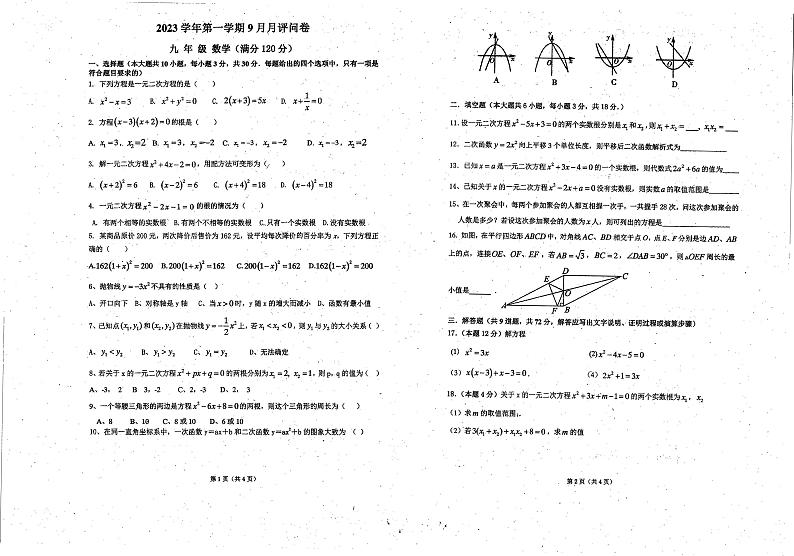 2023 学年第一学期 9 月月评问卷
九 年 级 数学（满分 120 分）
一、选择题（本大题共 10 小题，每小题 3 分，共 30 分．每题给出的四个选项中，只有一项是
符合题目要求的）
1. 下列方程是一元二次方程的是（ ）
A. x²－x=3 B. x²+y²=0 C. 2(x+3)=5x D. x+1/x=0
2. 方程(x－3)(x+2)=0的根是（ ）
A. x₁=3，x₂=2 B. x₁=3，x₂=－2 C. x₁=－3，x₂=－2 D. x₁=－3，x₂=2
3. 解一元二次方程x²+4x－2=0，用配方法可变形为（ ）
A. (x+2)²=6 B. (x－2)²=6 C. (x+4)²=18 D. (x－4)²=18
4. 一元二次方程x²－2x－1=0的根的情况为（ ）
A. 有两个相等的实数根 B.有两个不相等的实数根 C.只有一个实数根 D.没有实数根
5. 某商品原价 200 元，两次降价后售价为 162 元，设平均每次降价的百分率为 x，下列方程正
确的（ ）
A.162(1+x)²=200 B.200(1+x)²=162 C.200(1－x)²=162 D.162(1－x)²=200
6、抛物线y=－3x²不具有的性质是（ ）
A、开口向下 B、对称轴是 y 轴 C、当 x>0 时，y 随 x 的增大而减小 D、函数有最小值
7、已知点(x₁,y₁)和(x₂,y₂)在抛物线y=－1/2x²上，若x₁<x₂<0，则y₁与y₂的大小关系（ ）
A、y₁<y₂ B、y₁>y₂ C、y₁=y₂ D、无法确定
8、若关于 x 的一元二次方程x²+px+q=0的两根分别为x₁=2, x₂=1，则 p、q 的值为（ ）
A、-3， 2 B 3，-2 C、2，-3 D、2， 3
9、一个等腰三角形的两边是方程x²－6x+8=0的两根，则这个三角形的周长为（ ）
A、8 B、10 C、8 或 10 D、6 或 10
10、在同一直角坐标系中，一次函数 y=ax+b 和二次函数 y=ax²+b 的图象大致为 （ ）
第 1 页（共 4 页）
A B C D
二．填空题（本大题共 6 小题，每小题 3 分，共 18 分．）
11.设一元二次方程x²－5x+3=0的两个实数根分别是x₁和x₂,则x₁+x₂=____，x₁x₂=____
12．二次函数y=2x²向上平移 3 个单位长度，则平移后二次函数解析式为____
13．已知x=a是一元二次方程x²+3x－4=0的一个实数根，则代数式2a²+6a的值为____
14、已知关于x的一元二次方程x²－2x+a=0没有实数根，则实数a的取值范围是____
15、在一次聚会中，每两个参加聚会的人都互相握一次手，一共握手 28 次，问这次参加聚会的
人数是多少？若设这次参加聚会的人数为x人，则可列出的方程是____
16、如图，在平行四边形ABCD中，对角线AC、BD相交于点O，点E、F分别是边AD、AB
上的点，连接OE、OF、EF，若AB=√3，BC=2，∠DAB=30°，则△OEF周长的最
小值是____．
A B C D E F O
三．解答题（共 9 道题，共 72 分，解答应写出文字说明、证明过程或演算步骤）
17.（本题 12 分）解方程
（1） x²=3x （2）x²－4x－5=0
（3） x(x－3)+x－3=0． （4）2x²+1=3x
18.（本题 4 分）关于 x 的一元二次方程x²+3x+m－1=0的两个实数根为x₁，x₂
（1）求m的取值范围；
（2）若3(x₁+x₂)+x₁x₂+8=0，求m的值
第 2 页（共 4 页）